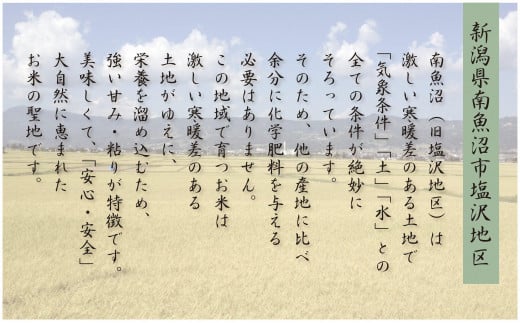 新潟県南魚沼市塩沢地区
南魚沼（旧塩沢地区）は
激しい寒暖差のある土地で
「気象条件」「土」「水」との
全ての条件が絶妙に
そろっています。
そのため、他の産地に比べ
余分に化学肥料を与える
必要はありません。
この地域で育つお米は
激しい寒暖差のある
土地がゆえに、
栄養を溜め込むため、
強い甘み・粘りが特徴です。
美味しくて、「安心・安全」
大自然に恵まれた
お米の聖地です。